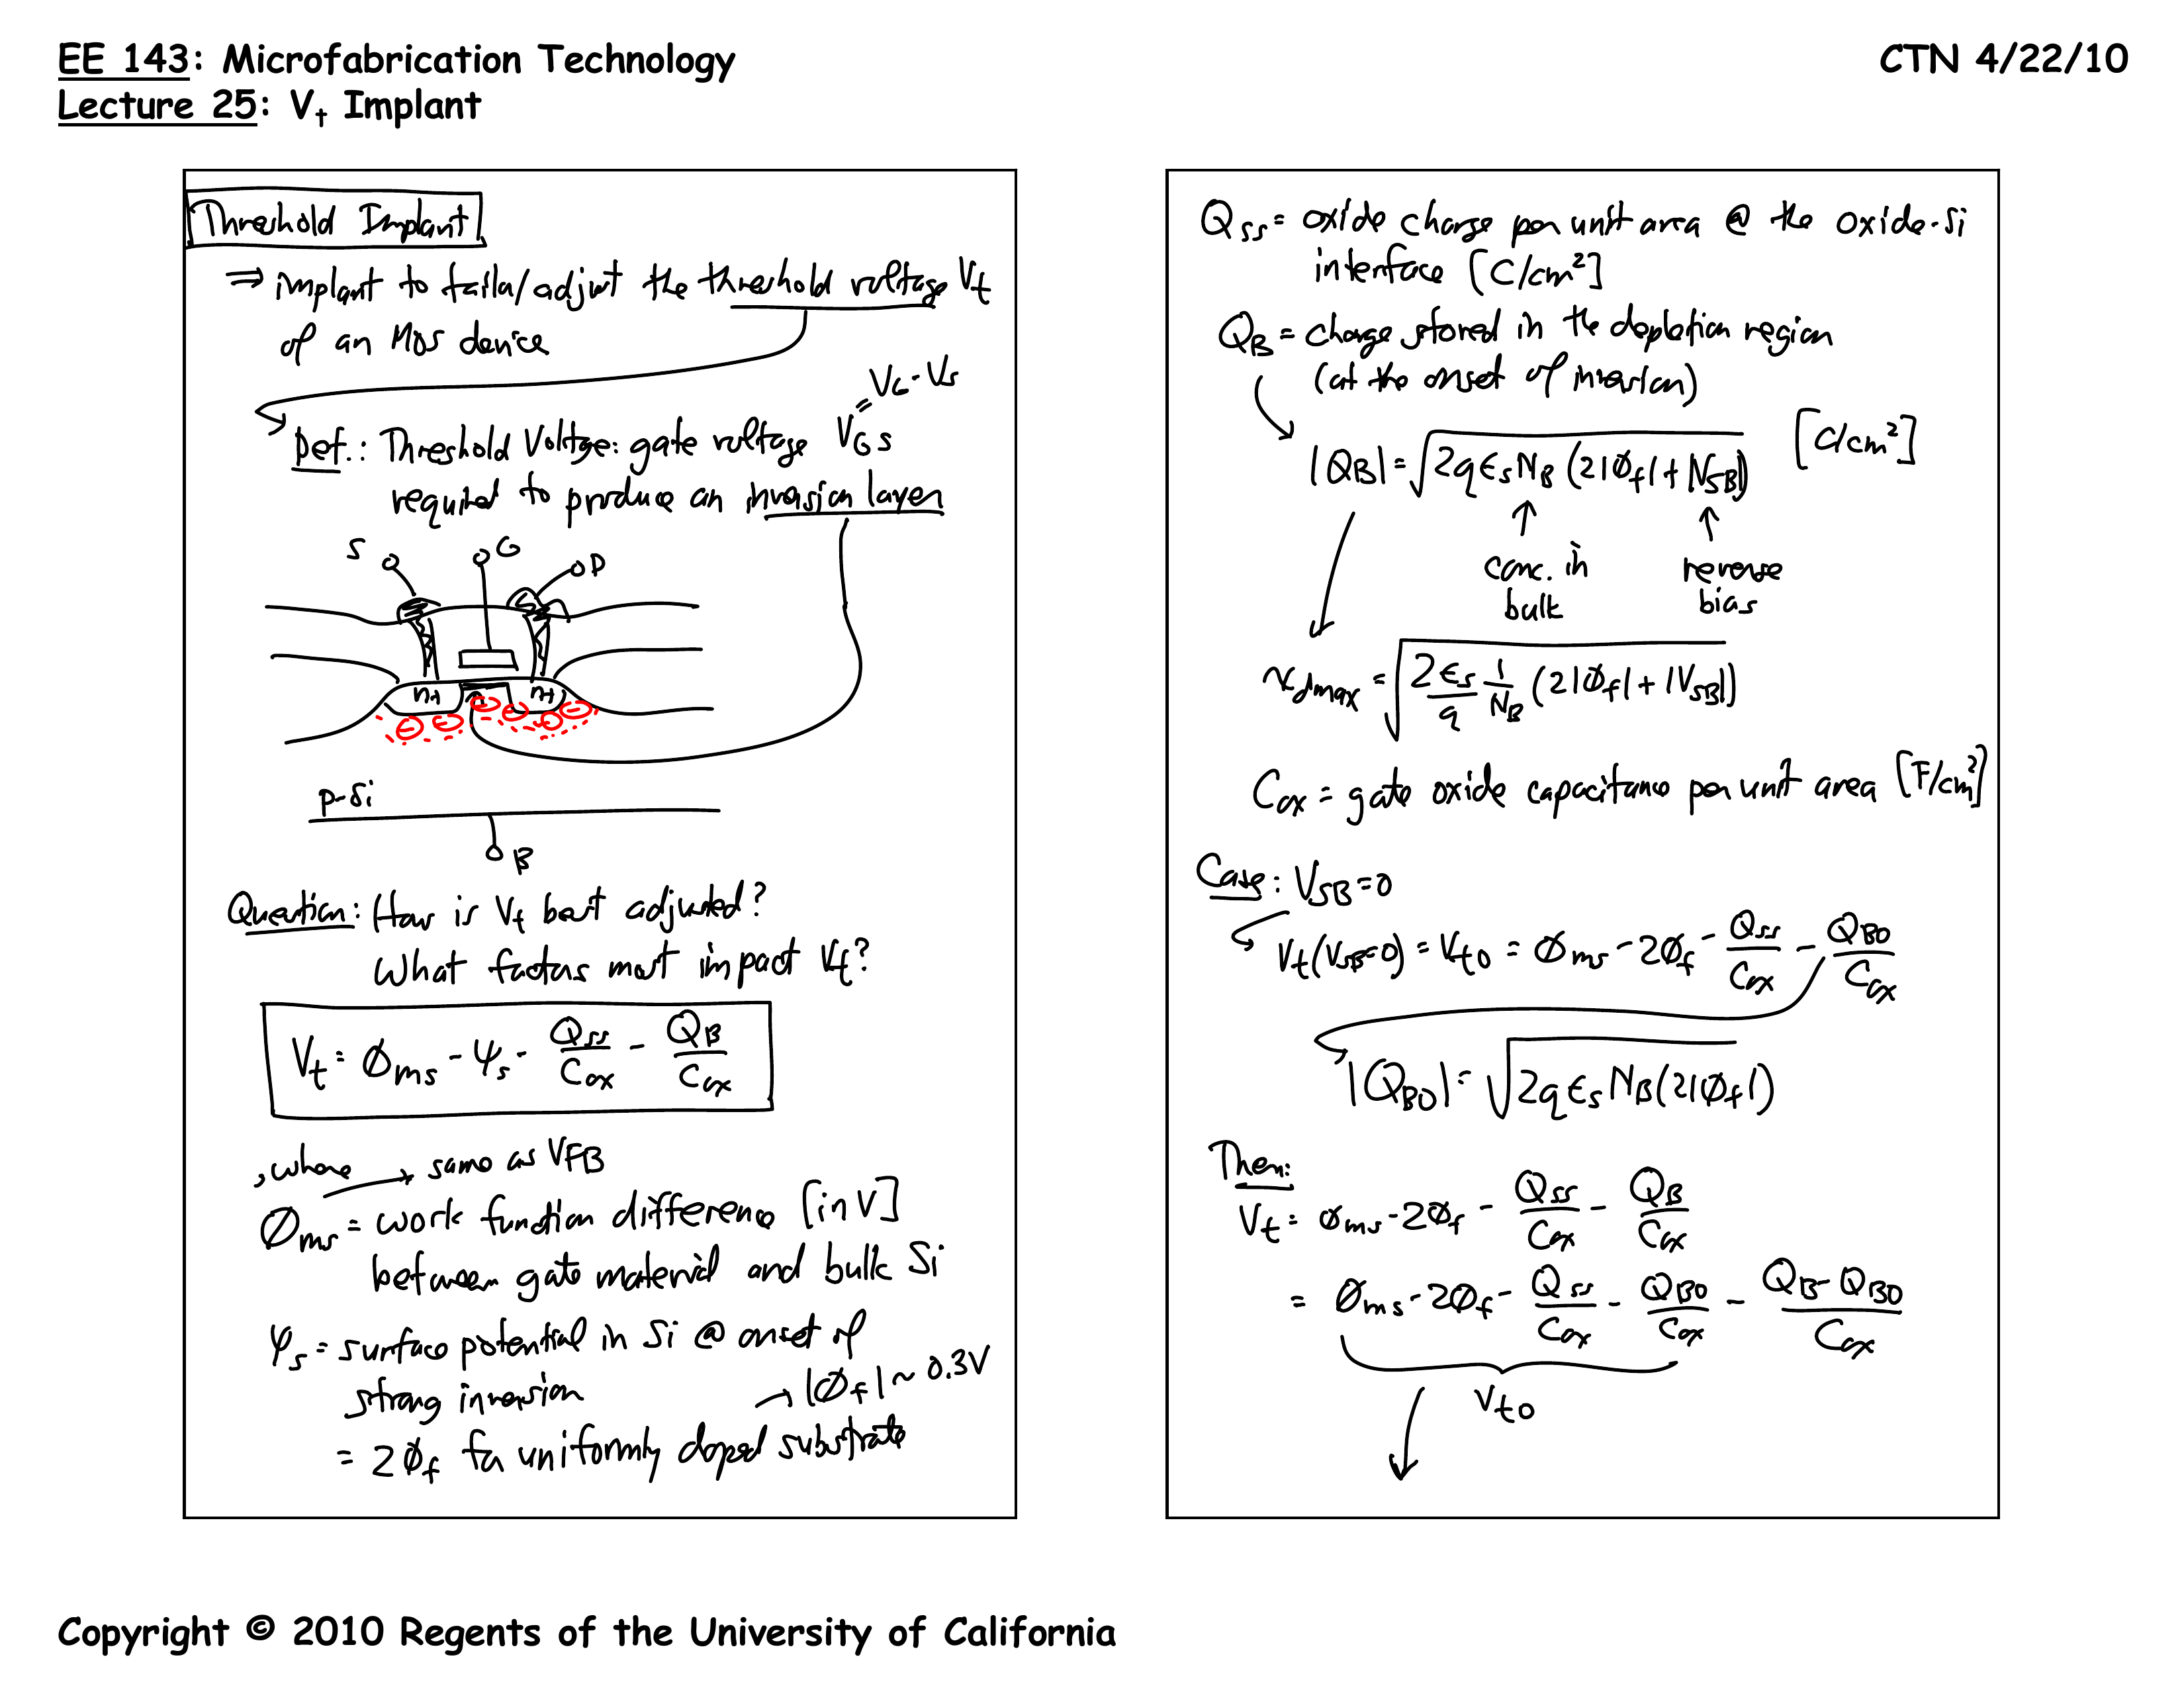 EE 143: Microfabrication Technology
CTN 4/22/10
Lecture 25: Vt Implant
Threshold Implant
⇒ implant to tailor/adjust the threshold voltage Vt
of an MOS device
= VG - VS
Def.: Threshold Voltage: gate voltage VGS
required to produce an inversion layer
S G D
n+ n+
p-Si
B
Question: How is Vt best adjusted?
What factors most impact Vt?
Vt = Øms - ψs - Qss/Cox - QB/Cox
, where → same as VFB
Øms = work function difference [in V]
between gate material and bulk Si
ψs = surface potential in Si @ onset of
strong inversion → |Øf| ~ 0.3V
= 2Øf for uniformly doped substrate
Qss = oxide charge per unit area @ the oxide-Si
interface [C/cm²]
QB = charge stored in the depletion region
(at the onset of inversion)
|QB| = √(2qεsNB(2|Øf| + |VSB|)) [C/cm²]
↑ ↑
conc. in reverse
bulk bias
xdmax = √(2εs/q 1/NB (2|Øf| + |VSB|))
Cox = gate oxide capacitance per unit area [F/cm²]
Case: VSB=0
Vt(VSB=0) = Vt0 = Øms - 2Øf - Qss/Cox - QB0/Cox
|QB0| = √(2qεsNB(2|Øf|))
Then:
Vt = Øms - 2Øf - Qss/Cox - QB/Cox
= Øms - 2Øf - Qss/Cox - QB0/Cox - (QB - QB0)/Cox
Vt0
Copyright © 2010 Regents of the University of California